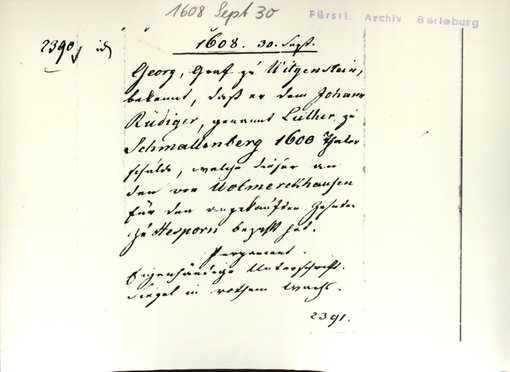 1608 Sept 30
Fürstl. Archiv Berleburg
2390
1608. 30. Sept.
Georg, Graf zu Witgenstein,
bekennt, daß er dem Johann
Rüdiger, genannt Luther, zu
Schmallenberg 1600 Thaler
schulde, welche dieser an
den von Wolmerckhausen
für den angekauften Zehnten
zu Hesporn bezahlt hat.
Pergament.
Eigenhändige Unterschrift.
Siegel in rothem Wachs.
2391.